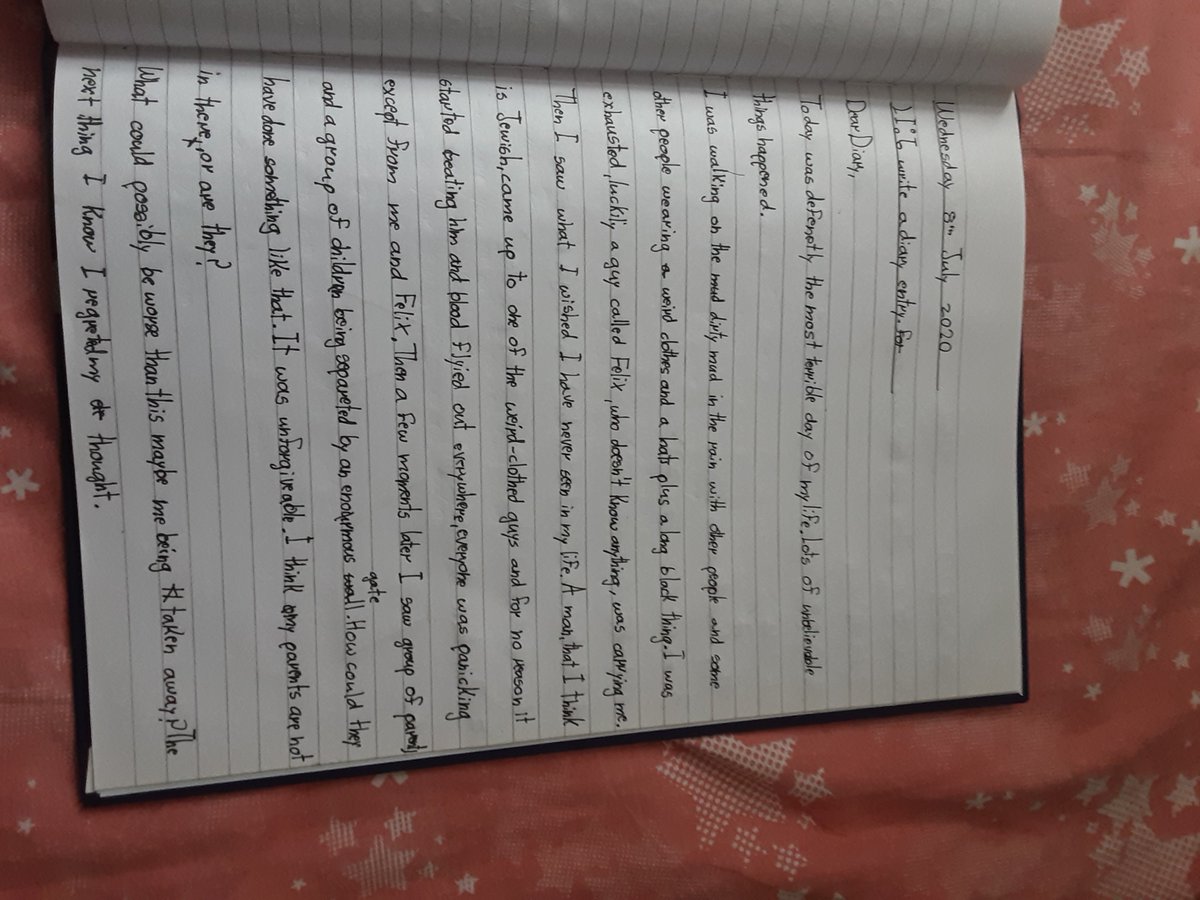 Wednesday 8th July 2020
L.I: To write a diary entry. for
Dear Diary,
Today was defenetly the most terrible day of my life. Lots of unbelievable
things happened.
I was walking on the mud dirty mud in the rain with other people and some
other people wearing a weird clothes and a hats plus a long black thing. I was
exhausted, luckily a guy called Felix, who doesn't know anything, was carrying me.
Then I saw what I wished I have never seen in my life. A man, that I think
is Jewish, came up to one of the weird-clothed guys and for no reason it
started beating him and blood flyied out everywhere, everyone was panicking
except from me and Felix. Then a few moments later I saw group of parents
and a group of children being separeted by an enourmous wall gate. How could they
have done something like that. It was unforgiveable. I think my parents are not
in there, or are they?
What could possibly be worse than this maybe me being taken away? The
next thing I know I regreted my thought.